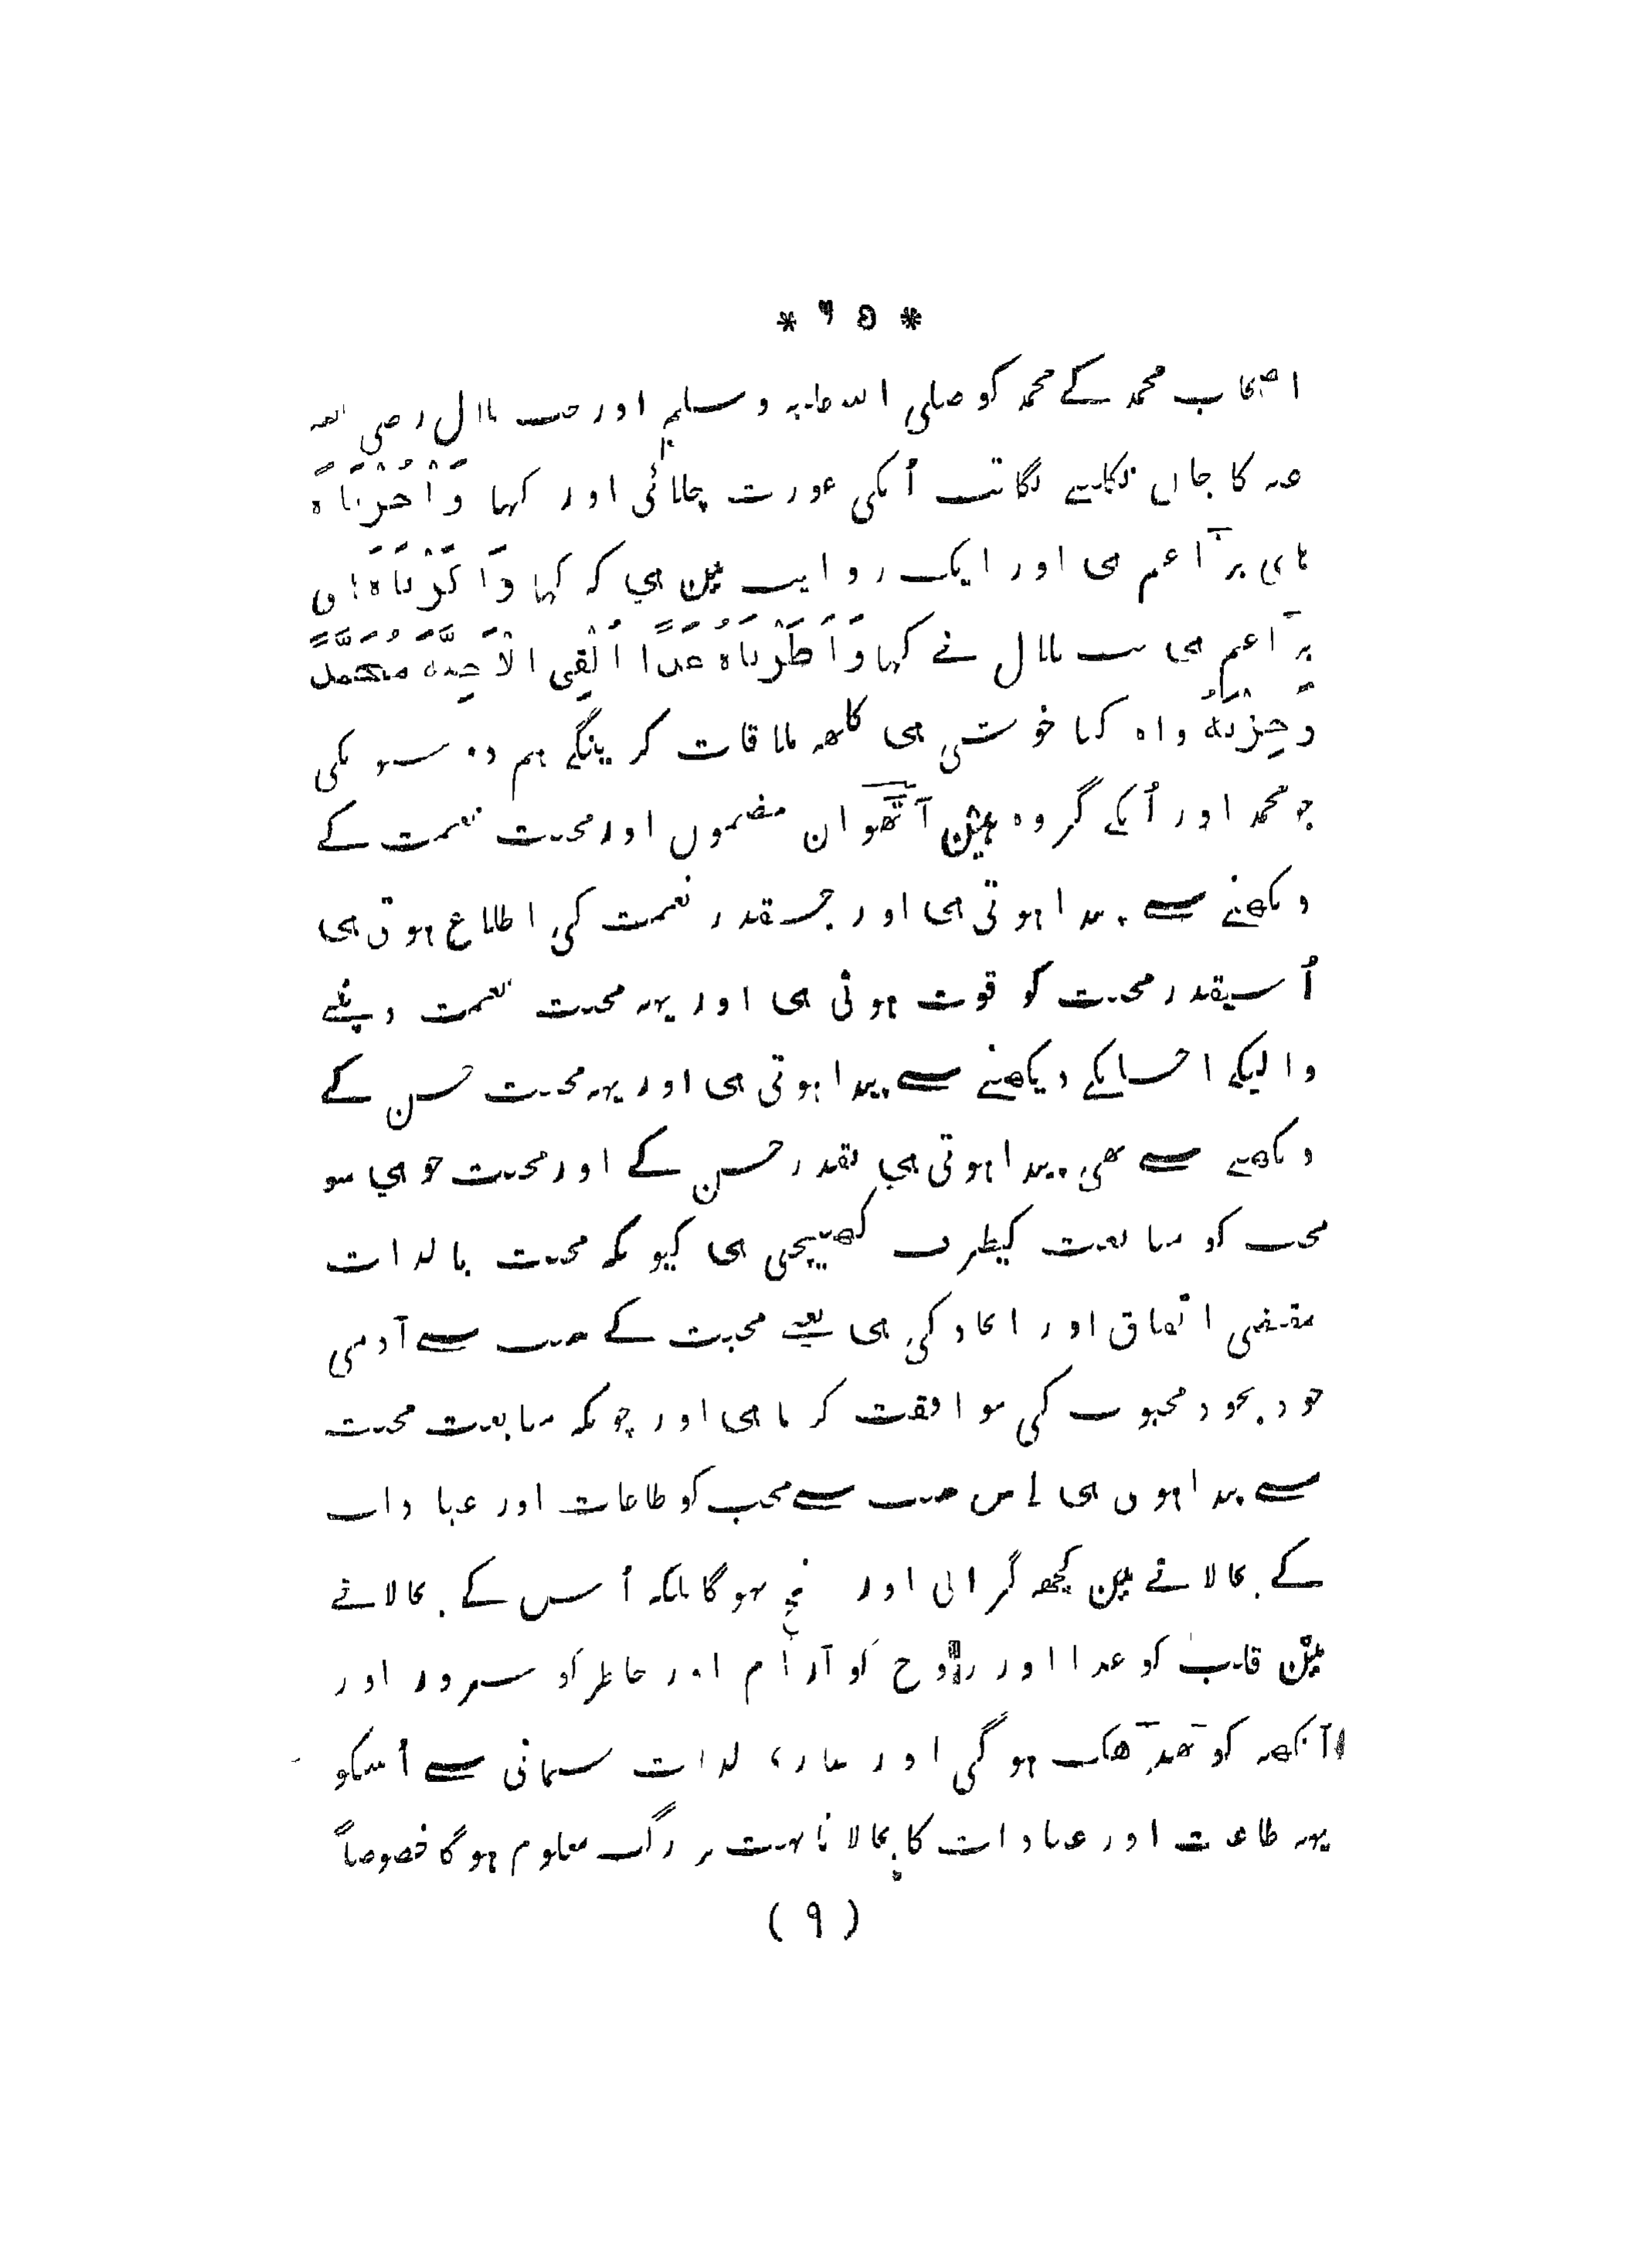 * ٦٥ *
اصحاب محمد کے محمد کو صلی اللہ علیہ و سلم اور جب بلال رضی اللہ
عنہ کا جان نکلنے لگا تب اُنکی عورت چلائی اور کہا وَاحُزْنَاہ
ہای بڑا غم ہی اور ایک روایت مین ہی کہ کہا وَاکَرْبَاہ
بڑا غم ہی تب بلال نے کہا وَاطَرَبَاہ غَدًا اَلْقِی الْاَحِبَّہ مُحَمَّدًا
وَحِزْبَہُ واہ کیا خوشی ہی کلھہ ملاقات کرینگے ہم دوستونکی
جو محمد اور اُنکے گروہ ہین آٹھوان مضمون اور محبت نعمت کے
دیکھنے سے پیدا ہوتی ہی اور جسقدر نعمت کی اطلاع ہوتی ہی
اُسیقدر محبت کو قوت ہوتی ہی اور یہہ محبت نعمت دینے
والیکے احسانکے دیکھنے سے پیدا ہوتی ہی اور یہہ محبت حسن کے
دیکھنے سے بھی پیدا ہوتی ہی بقدر حسن کے اور محبت جو ہی سو
محب کو متابعت کیطرف کھینچتی ہی کیونکہ محبت بالذات
مقتضی اتفاق اور اتحاد کی ہی یعنے محبت کے سبب سے آدمی
خود بخود محبوب کی موافقت کرتا ہی اور چونکہ متابعت محبت
سے پیدا ہوتی ہی اس سبب سے محب کو طاعات اور عبادات
کے بجالانے مین کچھہ گرانی اور نہوگا بلکہ اُس کے بجالانے
مین قلب کو غذا اور روح کو آرام اور خاطر کو سرور اور
آنکھہ کو ٹھنڈھک ہوگی اور سارے لذات جسمانی سے اُسکو
یہہ طاعت اور عبادات کا بجالانا بہت بزرگ معلوم ہوگا خصوصاً
(٩)